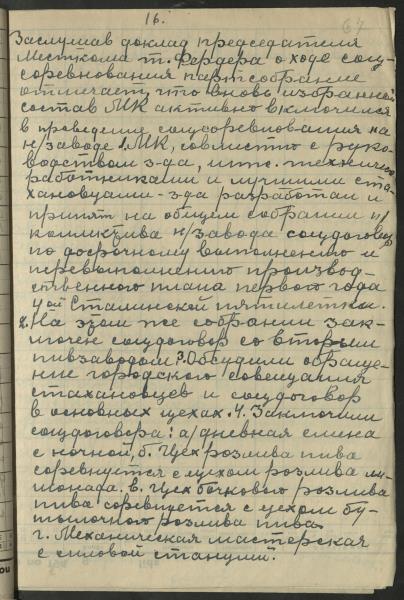 16.
67
Заслушав доклад председателя
Месткома т. Фердера о ходе соц-
соревнования партсобрание
отмечает, что вновь избранный
состав МК активно включился
в проведение соцсоревнования на
н/заводе 1. МК, совместно с руко-
водством з-да, инж. технич.
работниками и лучшими ста-
хановцами з-да разработан и
принят на общем собрании
коллектива н/завода соцдоговор
по досрочному выполнению и
перевыполнению производ-
ственного плана первого года
4ой Сталинской пятилетки.
2. На этом же собрании зак-
лючен соцдоговор со вторым
пивзаводом. 3. Обсудили обраще-
ние городского совещания
стахановцев и соцдоговор
в основных цехах. 4. Заключили
соцдоговора: а/ дневная смена
с ночной, б. Цех розлива пива
соревнуется с цехом розлива ли-
монада. в. Цех бочкового розлива
пива соревнуется с цехом бу-
тылочного розлива пива
г. Механическая мастерская
с силовой станцией.